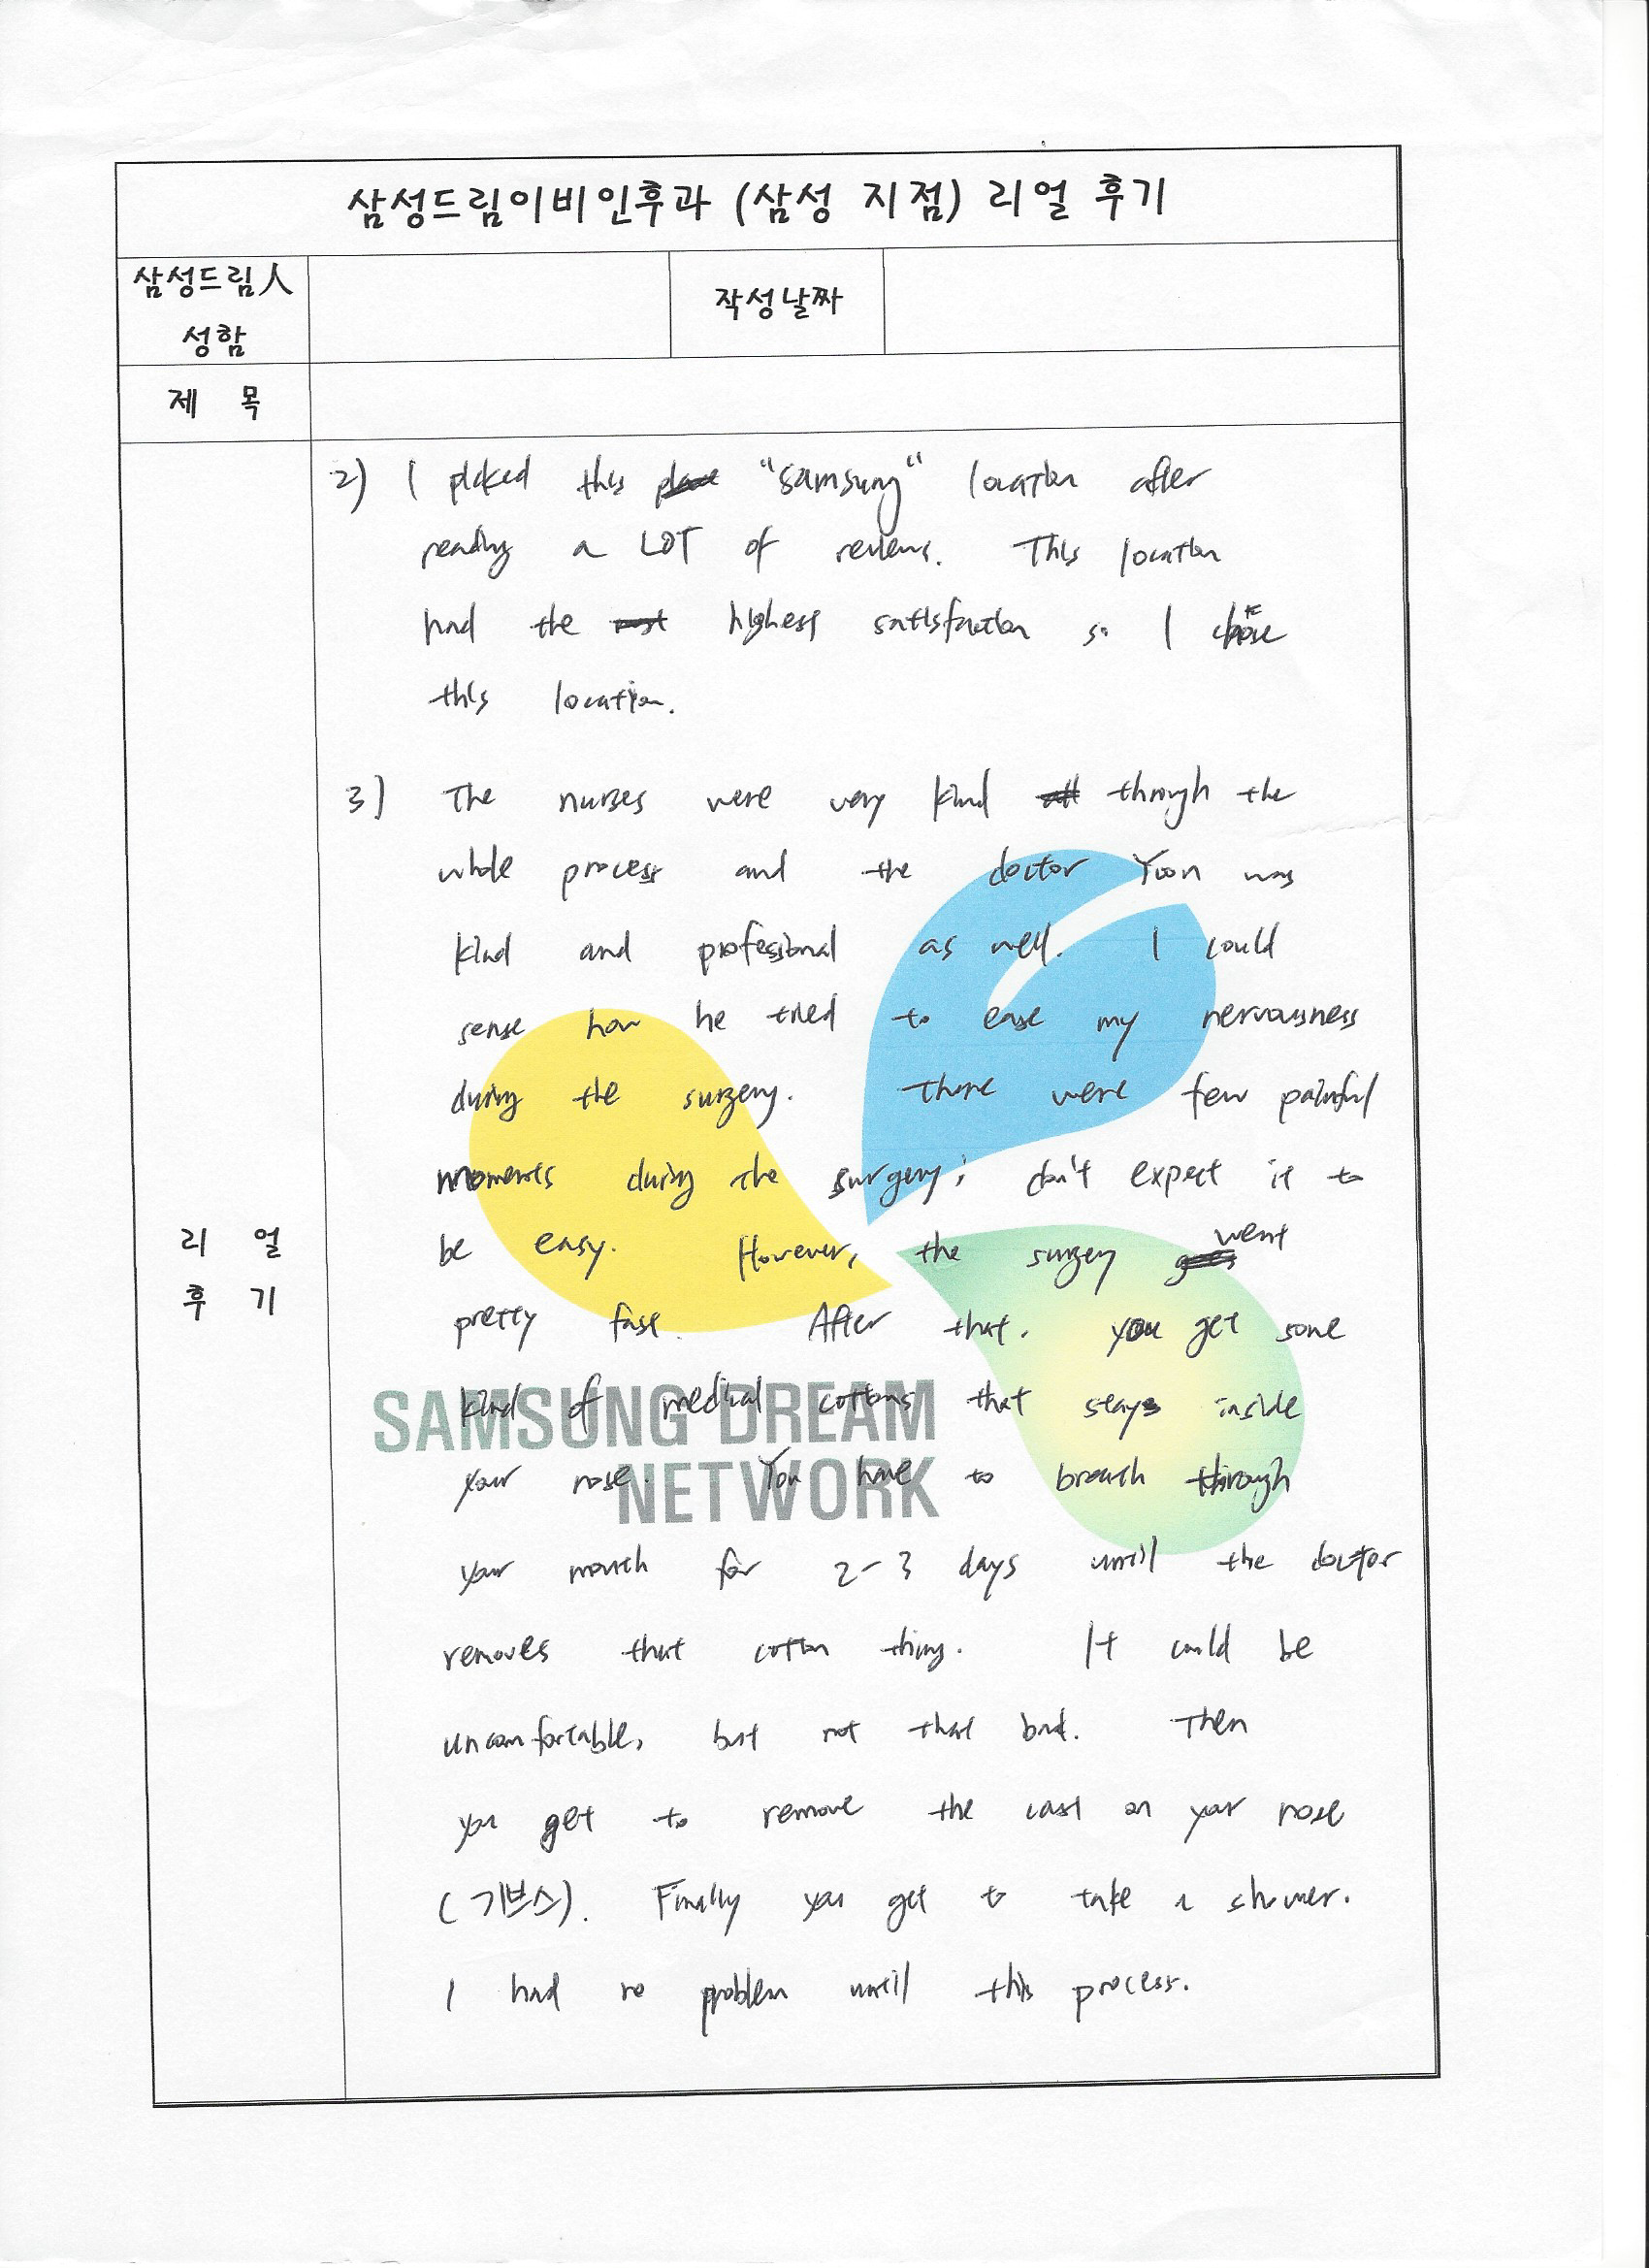 삼성드림이비인후과 (삼성 지점) 리얼 후기
삼성드림人
성함
작성날짜
제 목
2) I picked this place "samsung" location after
reading a LOT of reviews. This location
had the most highest satisfaction so I chose
this location.
3) The nurses were very kind all through the
whole process and the doctor Yoon was
kind and professional as well. I could
sense how he tried to ease my nervousness
during the surgery. There were few painful
moments during the surgery; don't expect it to
be easy. However, the surgey went
pretty fast. After that. you get some
kind of medical cottons that stays inside
your nose. You have to breath through
your mouth for 2-3 days until the doctor
removes that cotton thing. It could be
uncomfortable, but not that bad. Then
you get to remove the cast on your nose
(기브스). Finally you get to take a shower.
I had no problem until this process.
리 얼
후 기
SAMSUNG DREAM
NETWORK